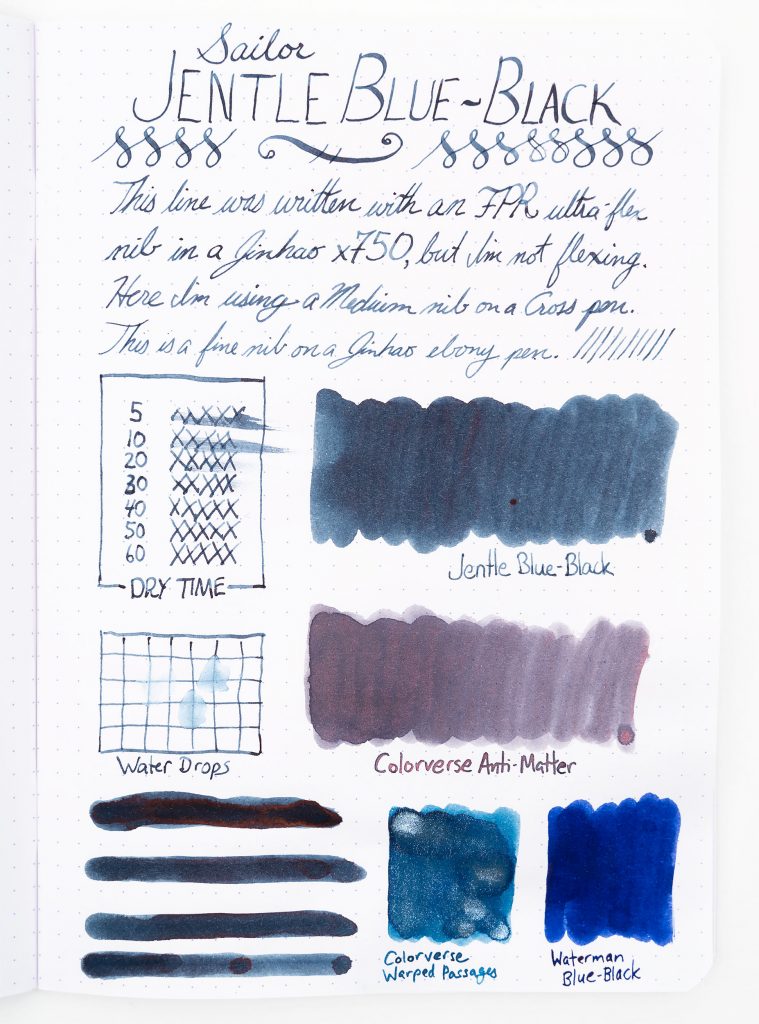 Sailor
JENTLE BLUE~BLACK
This line was written with an FPR ultra-flex
nib in a Jinhao x750, but I'm not flexing.
Here I'm using a Medium nib on a Cross pen.
This is a fine nib on a Jinhao ebony pen.
5
10
20
30
40
50
60
DRY TIME
Jentle Blue-Black
Water Drops
Colorverse Anti-Matter
Colorverse
Warped Passages
Waterman
Blue-Black